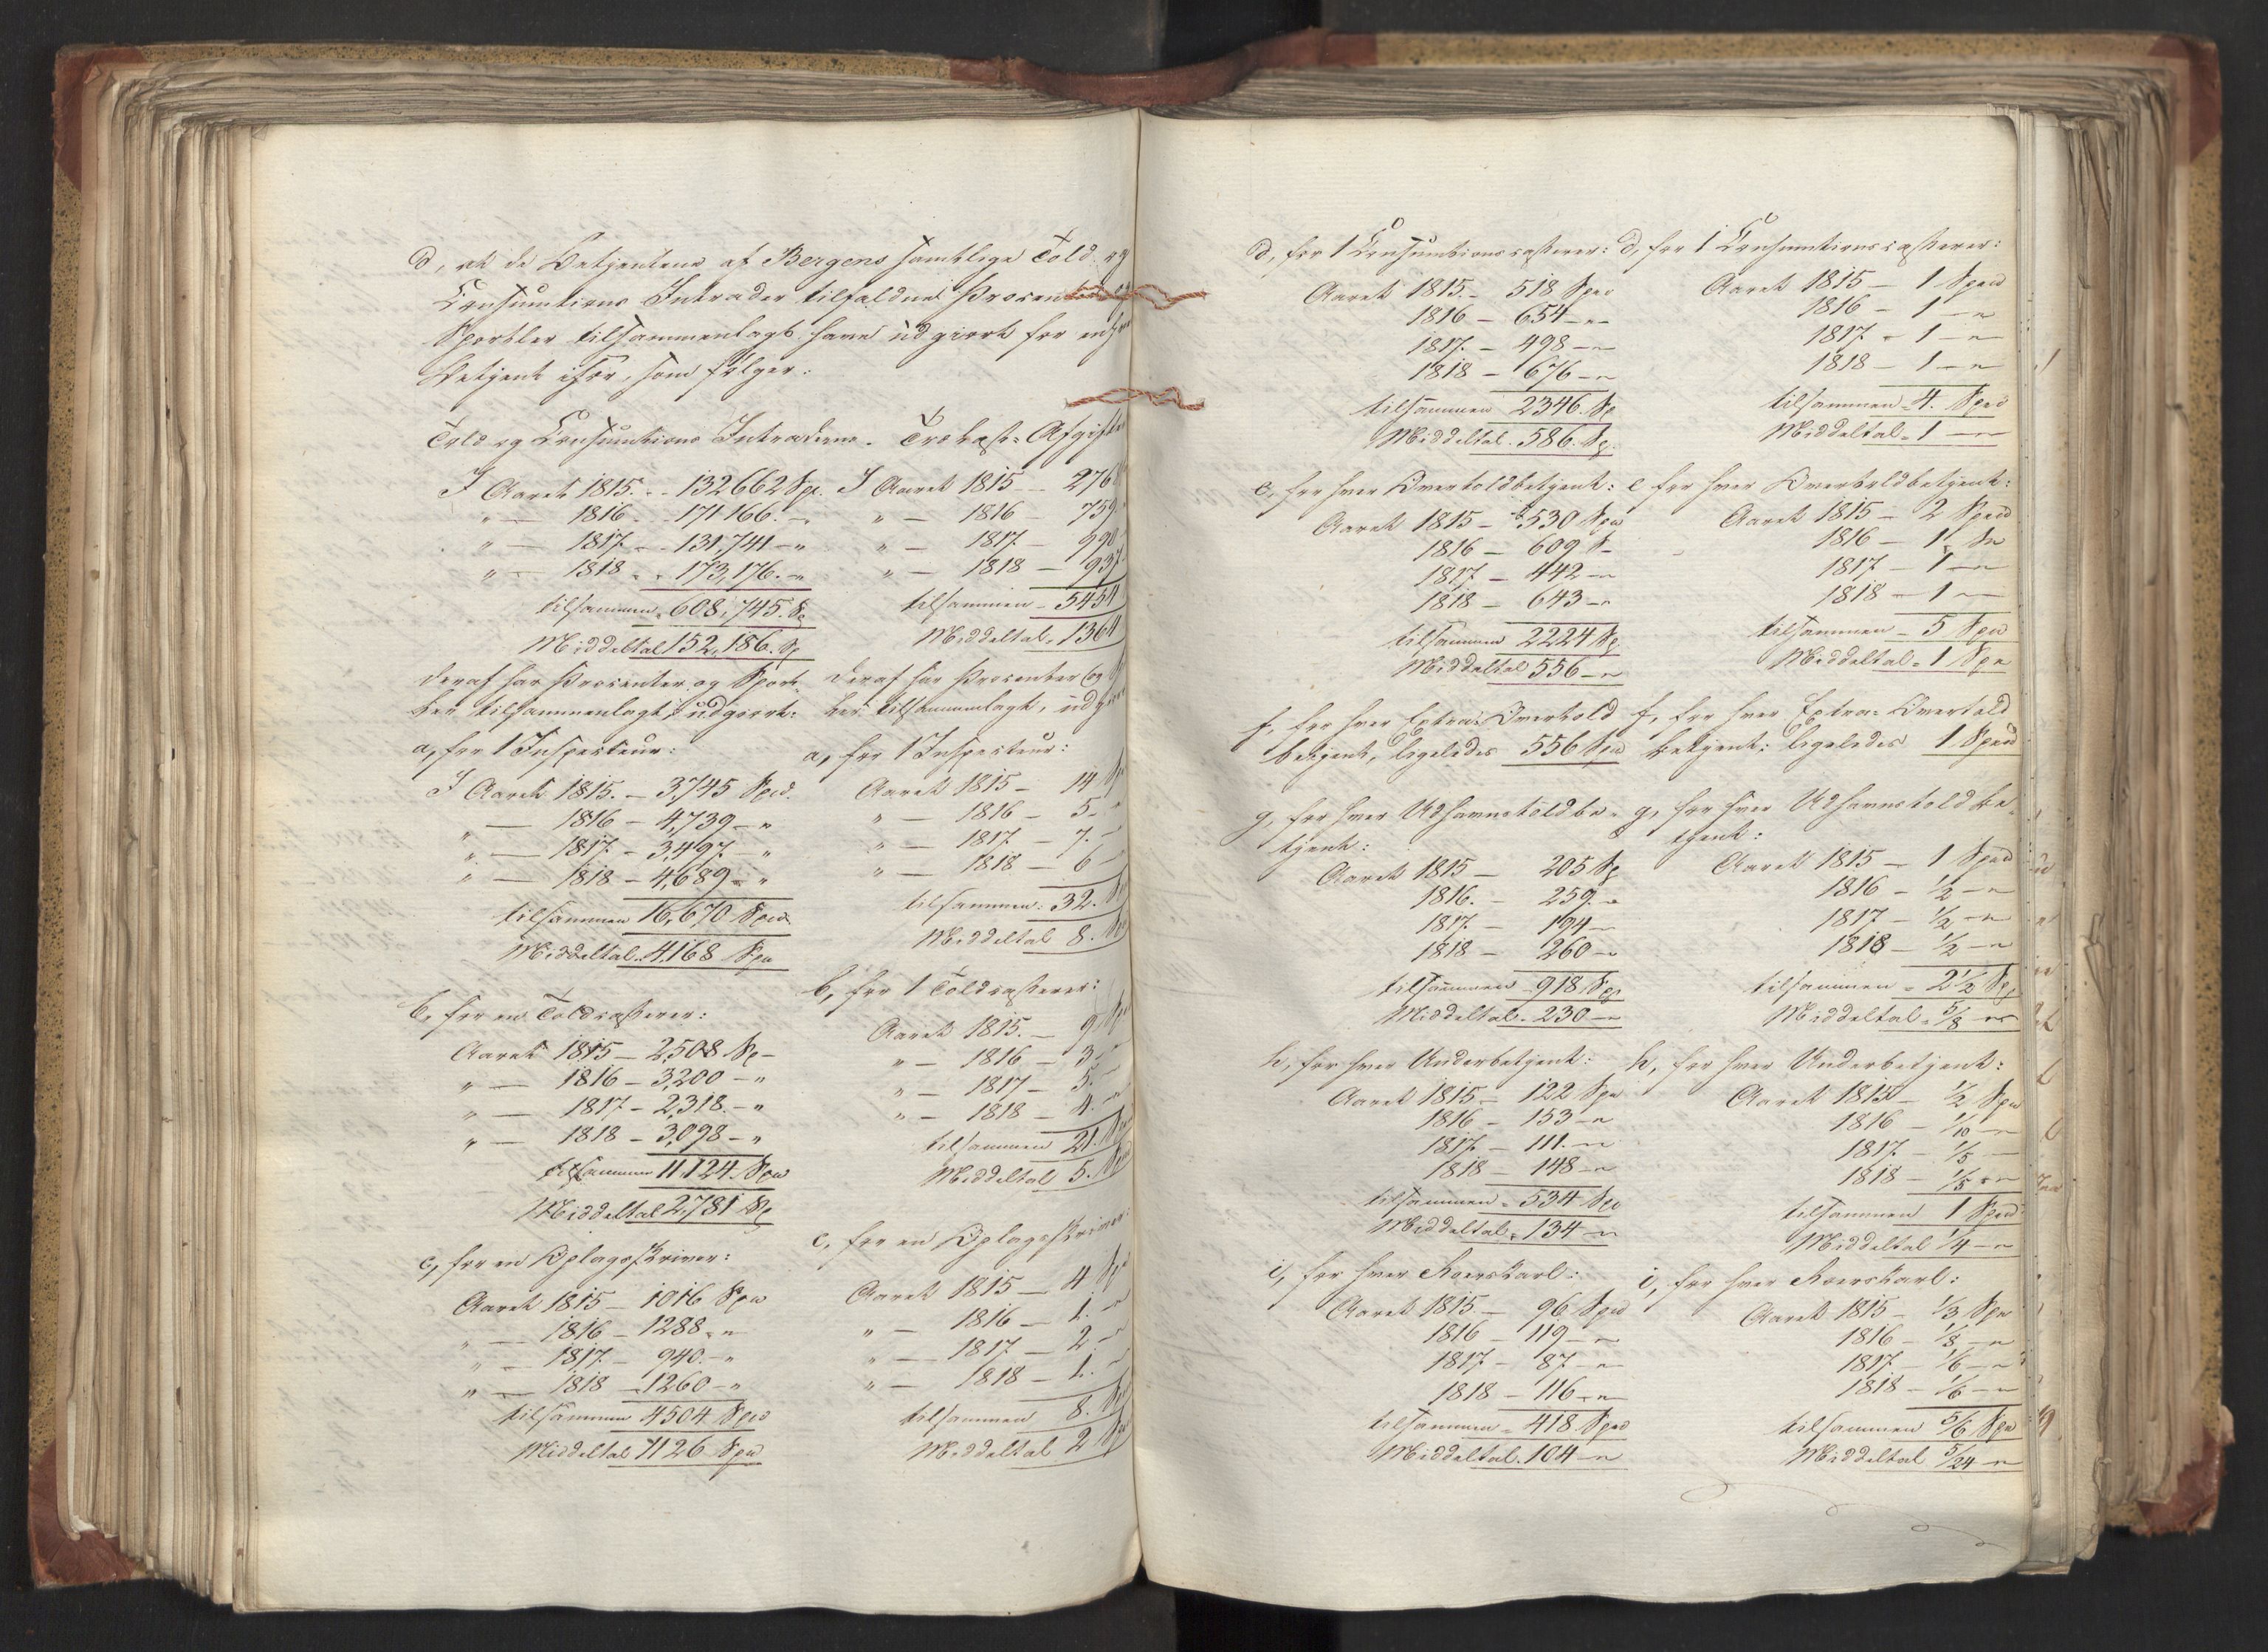 d, at de Betjentene af Bergens samtlige Told og
Consumtions Intrader tilfaldne Procenter og
Sportler tilsammenlagt have udgiort for enhver
Betjent især, som følger:
Told og Consumtions Intraderne.
I Aaret 1815. - 132662 Spe.
" — 1816. - 171166. - "
" — 1817. - 131,741 - "
" — 1818 - 173,176. - "
tilsammen 608,745. Sp
Middeltal 152,186. Sp
deraf har Procenter og Sport-
ler tilsammenlagt, udgiort:
a, for 1 Inspecteur:
I Aaret 1815. - 3,745 Spd.
" — 1816 - 4,739 - "
" — 1817. - 3,497. - "
" — 1818 - 4,689 - "
tilsammen 16,670 Spd.
Middeltal. 4,168 Spd
b, for en Toldcasserer:
Aaret 1815 - 2,508 Sp -
" — 1816 - 3,200 - "
" — 1817 - 2,318. - "
" — 1818 - 3,098 - "
tilsammen 11,124. Spd
Middeltal 2,781 Sp
c, for en Oplagsskriver:
Aaret 1815 - 1016 Spd
" — 1816 - 1288. - "
" — 1817. - 940. - "
" — 1818 - 1260 - "
tilsammen 4504 Spd
Middeltal 1126 Spd
Afgifter
I Aaret 1815 - 276
" — 1816 - 759.
" — 1817. - 990
" — 1818 - 937.
tilsammen - 5454
Middeltal. 1364
deraf har Procenter og
ler tilsammenlagt, udgiort
a, for 1 Inspecteur:
Aaret 1815 - 14 Sp
" — 1816 - 5 - "
" — 1817 - 7. -
" — 1818 - 6 -
tilsammen: 32. Sp
Middeltal 8. Sp
b, for 1 Toldcasserer:
Aaret 1815. - 9 Sp
" — 1816 - 3 - "
" — 1817 - 5. -
" — 1818 - 4. - "
tilsammen 21. Sp
Middeltal 5. Sp
c, for en Oplagsskriver:
Aaret 1815 - 4 Sp
" — 1816 - 1. - "
" — 1817 - 2. - "
" — 1818 - 1. -
tilsammen 8. Sp
Middeltal 2 Sp
d, for 1 Consumtionscasserer:
Aaret 1815. - 518 Spd
1816 - 654 - "
1817. - 498 - "
1818 - 676 - "
tilsammen 2346. Sp
Middeltal. 586. Sp.
e, for hver Overtoldbetjent:
Aaret 1815 - 530 Spd
1816 - 609 S -
1817 - 442 - "
1818 - 643 - "
tilsammen 2224 Sp
Middeltal 556 - "
f, for hver Extra-Overtold
betjent, ligeledes 556 Spd
g, for hver Udhavnstoldbe-
tjent:
Aaret 1815 - 205 Sp
1816. - 259. - "
1817. - 194 -
1818 - 260 - "
tilsammen - 918 Sp
Middeltal - 230 - "
h, for hver Underbetjent:
Aaret 1815 - 122 Spd
1816 - 153 - "
1817. - 111. - "
1818 - 148 - "
tilsammen - 534 Spd
Middeltal. 134 - "
i, for hver Roerskarl:
Aaret 1815. - 96 Spd
1816 - 119 - "
1817. - 87 - "
1818 - 116 - "
tilsammen - 418. Spd
Middeltal. 104 - "
d, for 1 Consumtionscasserer:
Aaret 1815 - 1 Spd
1816 - 1 - "
1817 - 1 - "
1818 - 1 - "
tilsammen - 4. Spd
Middeltal - 1 - "
e for hver Overtoldbetjent:
Aaret 1815 - 2 Spd
1816 - 1 Sp
1817 - 1 - "
1818 - 1 -
tilsammen - 5 Spd
Middeltal - 1 Spd
f, for hver Extra-Overtold
betjent: ligeledes 1 Spd
g, for hver Udhavnstoldbe-
tjent:
Aaret 1815 - 1 Spd
1816 - 1/2 - "
1817 - 1/2 - "
1818 - 1/2 - "
tilsammen - 2 1/2 Sp
Middeltal - 5/8 - "
h, for hver Underbetjent:
Aaret 1815 - 1/2 Spd
1816 - 1/10 - "
1817. - 1/5 -
1818 - 1/5 - "
tilsammen 1 Spd
Middeltal 1/4 - "
i, for hver Roerskarl:
Aaret 1815 - 1/3 Spd
1816 - 1/8 - "
1817 - 1/6 - "
1818 - 1/6 - "
tilsammen 5/6 Spd
Middeltal 5/24 - "